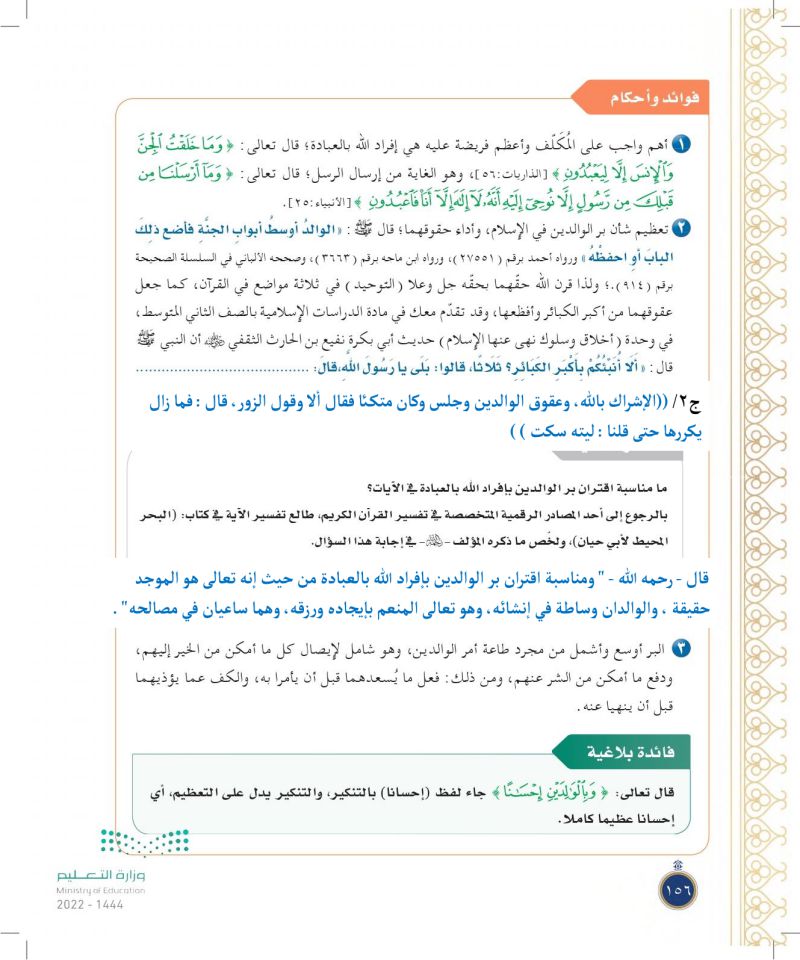 فوائد وأحكام
١ أهم واجب على المُكَلَّف وأعظم فريضة عليه هي إفراد الله بالعبادة؛ قال تعالى: ﴿ وَمَا خَلَقْتُ ٱلْجِنَّ
وَٱلْإِنسَ إِلَّا لِيَعْبُدُونِ ﴾ [الذاريات:٥٦]، وهو الغاية من إرسال الرسل؛ قال تعالى: ﴿ وَمَآ أَرْسَلْنَا مِن
قَبْلِكَ مِن رَّسُولٍ إِلَّا نُوحِىٓ إِلَيْهِ أَنَّهُۥ لَآ إِلَٰهَ إِلَّآ أَنَا۠ فَٱعْبُدُونِ ﴾ [الأنبياء:٢٥].
٢ تعظيم شأن بر الوالدين في الإسلام، وأداء حقوقهما؛ قال ﷺ: «الوالدُ أوسطُ أبوابِ الجنَّةِ فأضع ذلكَ
البابَ أو احفظْهُ» ورواه أحمد برقم (٢٧٥٥١)، ورواه ابن ماجه برقم (٣٦٦٣)، وصححه الألباني في السلسلة الصحيحة
برقم (٩١٤).؛ ولذا قرن الله حقَّهما بحقّه جل وعلا (التوحيد) في ثلاثة مواضع في القرآن، كما جعل
عقوقهما من أكبر الكبائر وأفظعها، وقد تقدّم معك في مادة الدراسات الإسلامية بالصف الثاني المتوسط،
في وحدة (أخلاق وسلوك نهى عنها الإسلام) حديث أبي بكرة نفيع بن الحارث الثقفي ﵁ أن النبي ﷺ
قال: «أَلَا أُنَبِّئُكُمْ بِأَكْبَرِ الكَبَائِرِ؟ ثَلَاثًا، قالوا: بَلَى يا رَسُولَ اللَّهِ،قالَ: ........................................
ج٢/ ((الإشراك بالله، وعقوق الوالدين وجلس وكان متكئا فقال ألا وقول الزور، قال : فما زال
يكررها حتى قلنا : ليته سكت ))
ما مناسبة اقتران بر الوالدين بإفراد الله بالعبادة في الآيات؟
بالرجوع إلى أحد المصادر الرقمية المتخصصة في تفسير القرآن الكريم، طالع تفسير الآية في كتاب: (البحر
المحيط لأبي حيان)، ولخّص ما ذكره المؤلف -﵀- في إجابة هذا السؤال.
قال - رحمه الله - " ومناسبة اقتران بر الوالدين بإفراد الله بالعبادة من حيث إنه تعالى هو الموجد
حقيقة ، والوالدان وساطة في إنشائه، وهو تعالى المنعم بإيجاده ورزقه، وهما ساعيان في مصالحه" .
٣ البر أوسع وأشمل من مجرد طاعة أمر الوالدين، وهو شامل لإيصال كل ما أمكن من الخير إليهم،
ودفع ما أمكن من الشر عنهم، ومن ذلك: فعل ما يُسعدهما قبل أن يأمرا به، والكف عما يؤذيهما
قبل أن ينهيا عنه.
فائدة بلاغية
قال تعالى: ﴿ وَبِٱلْوَٰلِدَيْنِ إِحْسَٰنًا ﴾ جاء لفظ (إحسانا) بالتنكير، والتنكير يدل على التعظيم، أي
إحسانا عظيما كاملا.
وزارة التعليم
Ministry of Education
2022 - 1444
١٥٦